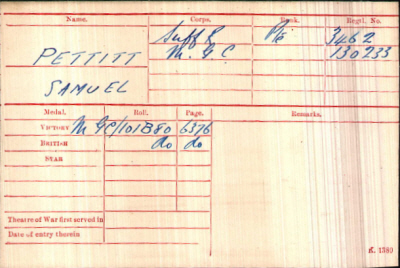 Name. Corps. Rank. Regtl. No.
PETTITT Suff R Pte 3462
SAMUEL M.G.C 130233
Medal. Roll. Page. Remarks.
VICTORY M GC/101B80 6376
BRITISH do do
STAR
Theatre of War first served in
Date of entry therein
K. 1380